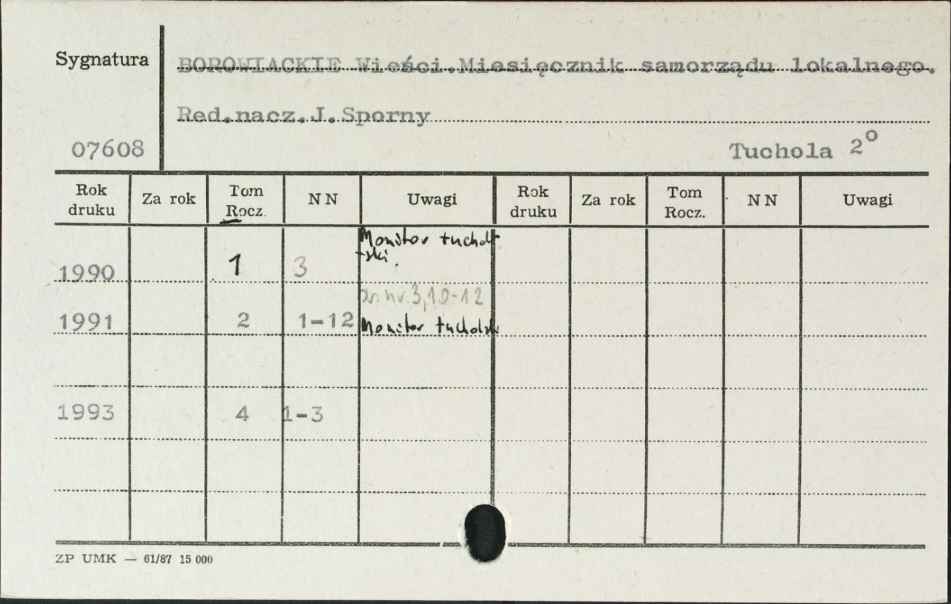 Sygnatura
BOROWIACKIE Wieści.Miesięcznik samorządu lokalnego.
Red.nacz.J.Sporny
07608
Tuchola 2o
Rok druku Za rok Tom Rocz. NN Uwagi Rok druku Za rok Tom Rocz. NN Uwagi
Monitor tuchol-
ski.
1990 1 3
nr 3,10-12
1991 2 1-12 Monitor tucholski
1993 4 1-3
ZP UMK — 61/87 15 000